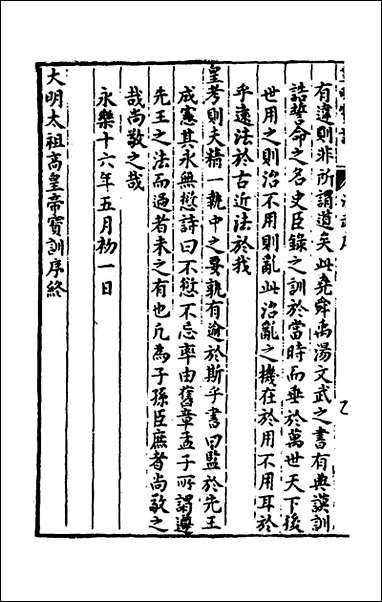 有違則非所謂道矣此堯舜禹湯文武之書有典謨訓
誥誓命之名史臣錄之訓於當時而垂於萬世天下後
世用之則治不用則亂此治亂之機在於用不用耳於
乎遠法於古近法於我
皇考則夫精一執中之要孰有逾於斯乎書曰監於先王
成憲其永無愆詩曰不愆不忘率由舊章孟子所謂遵
先王之法而過者未之有也凡為子孫臣庶者尚敬之
哉尚敬之哉
永樂十六年五月初一日
大明太祖高皇帝寶訓序終